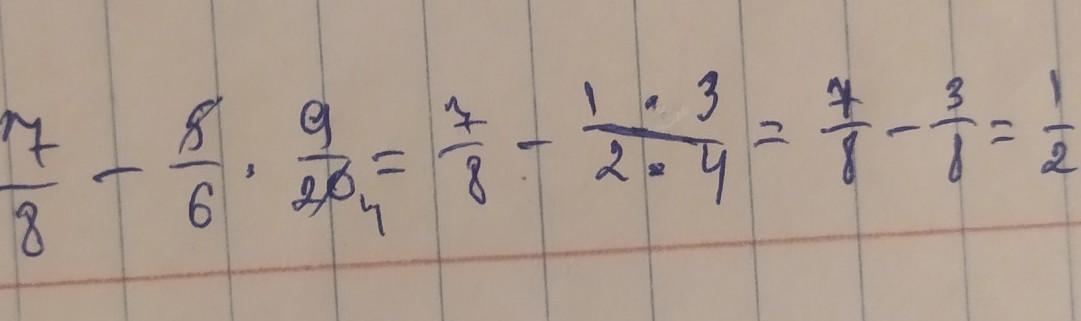 7/8 - 5/6 · 9/20 4 = 7/8 - 1 · 3 / 2 · 4 = 7/8 - 3/8 = 1/2